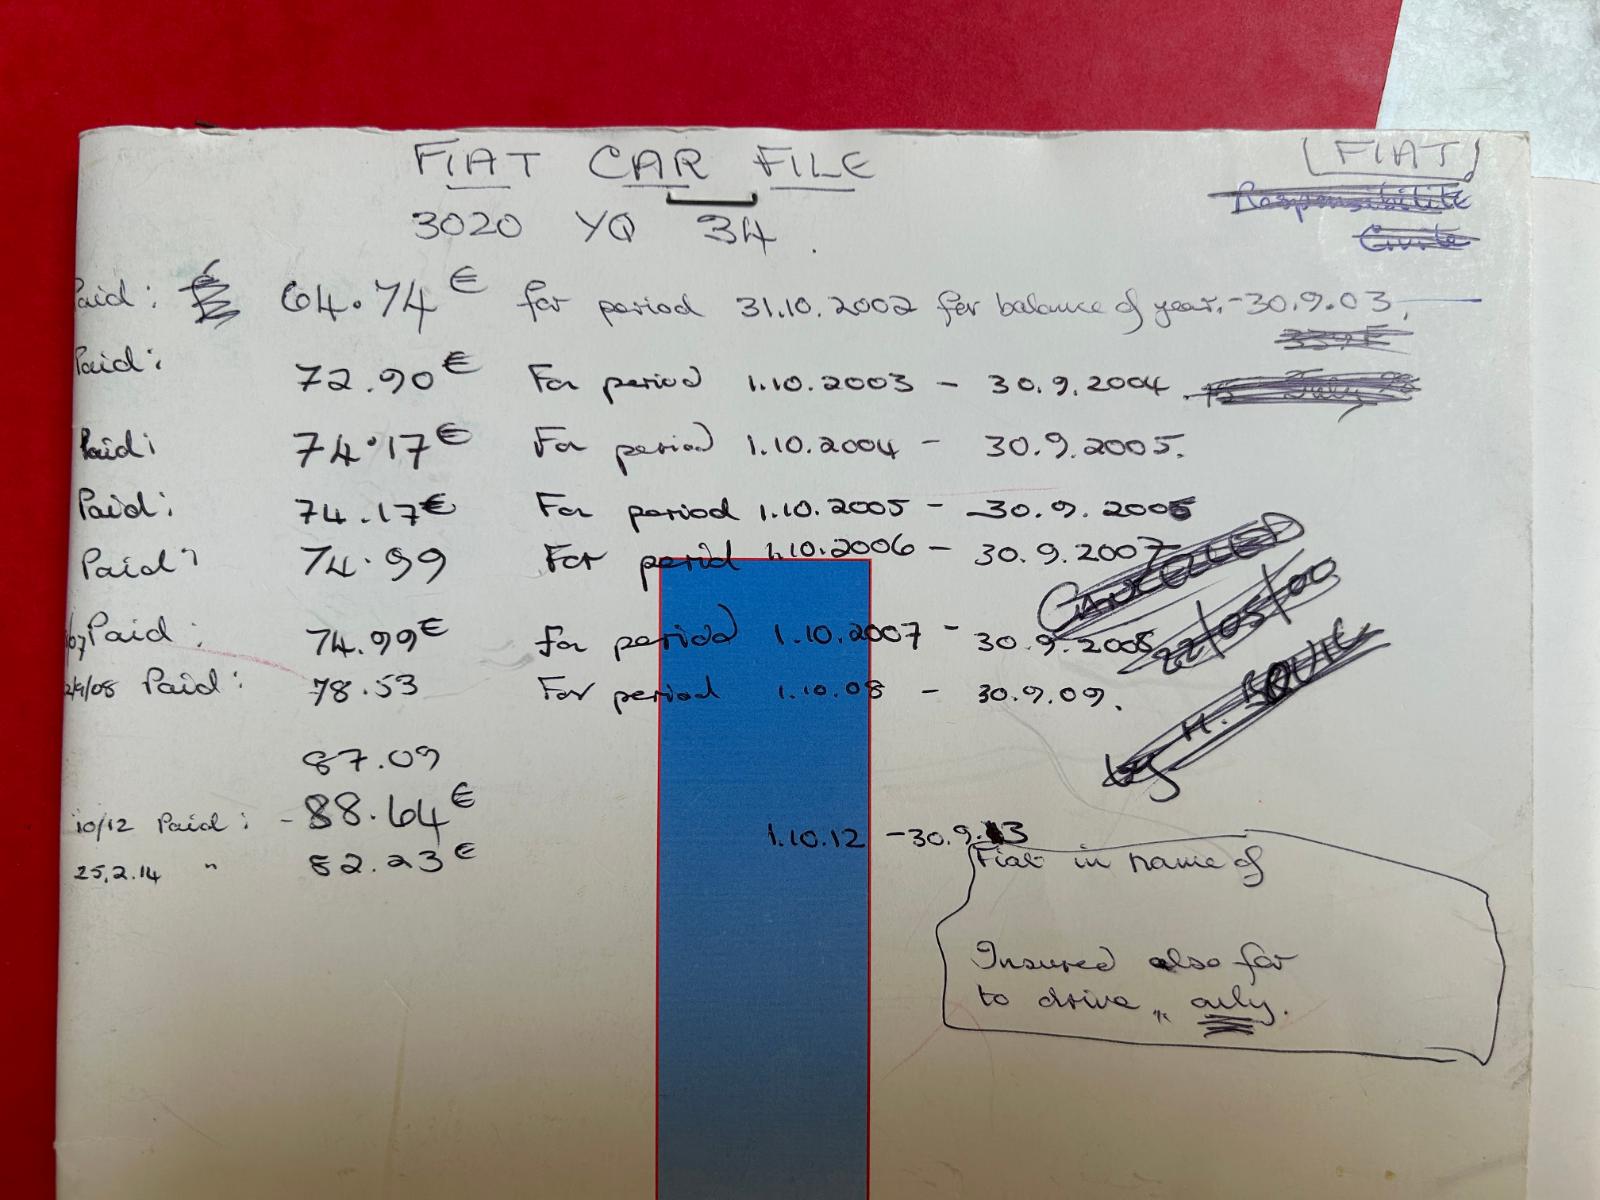 FIAT CAR FILE
[FIAT]
Responsibilite
Civile
3020 YQ 34.
Paid: £ 64.74€ for period 31.10.2002 for balance of year.-30.9.03.
Paid: 72.90€ For period 1.10.2003 - 30.9.2004.
Paid: 74.17€ For period 1.10.2004 - 30.9.2005.
Paid: 74.17€ For period 1.10.2005 - 30.9.2006
Paid: 74.99 For period 1.10.2006 - 30.9.2007
CANCELLED
22/05/00
by H.
Paid: 74.99€ for period 1.10.2007 - 30.9.2008
Paid: 78.53 For period 1.10.08 - 30.9.09.
87.09
10/12 Paid: - 88.64€ 1.10.12 - 30.9.13
25.2.14 " 82.23€
Fiat in name of
Insured also for
to drive " only.